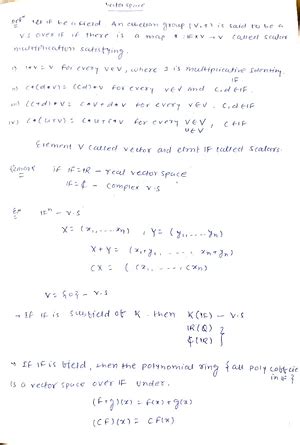 Vector space
Defn let F be a field. An abelian group (V,+) is said to be a
V.S over F if there is a map * : F×V → V called scalar
multiplication satisfying.
i) 1*v = v for every v∈V, where 1 is multiplicative identity
IF
ii) c*(d*v) = (cd)*v for every v∈V and c,d∈F.
iii) (c+d)*v = c*v+d*v for every v∈V. c,d∈F
iv) c*(u+v) = c*u+c*v for every v∈V, c∈F
u∈V
Element V called vector and elmt F called scalars.
Remark if F=R - real vector space
F=¢ - complex v.s
Ex Rn - v.s
X= (x1, .... xn) , Y= (y1, .... yn)
X+Y = (x1+y1, .... xn+yn)
CX = (cx1, .... cxn)
V={0} - v.s
→ If F is subfield of K. then K(F) - v.s
R(Q) }
¢(R)
→ If F is field, then the polynomial ring { all poly coeff
in F }
is a vector space over F under.
(f+g)(x) = f(x)+g(x)
(cf)(x) = cf(x)